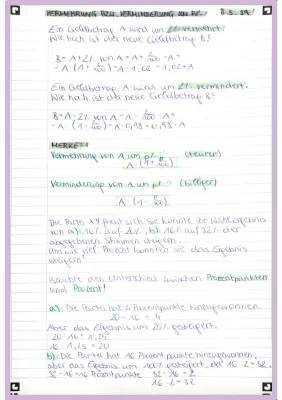 VERMEHRUNG BZW. VERMINDERUNG UM p%
Ein Geldbetrag A wird um 2% vermehrt.
Wie hoch ist der neue Geldbetrag B?
B = A + 2% von A = A + 2/100 · A =
= A · (1 + 2/100) = A · 1,02 = 1,02 · A
Ein Geldbetrag A wird um 2% vermindert.
Wie hoch ist der neue Geldbetrag B?
B = A - 2% von A = A - 2/100 · A =
= A · (1 - 2/100) = A · 0,98 = 0,98 · A
MERKE:
Vermehrung von A um p% (teurer)
A · (1 + p/100)
Verminderung von A um p% (billiger)
A · (1 - p/100)
Die Partei XY freut sich, sie konnte ihr Wahlergebnis
von a) 16% auf 20%, b) 16% auf 32% der
abgegebenen Stimmen steigern.
Um wie viel Prozent konnte sie das Ergebnis
steigern?
Beachte den Unterschied zwischen Prozentpunkten
und Prozent!
a): Die Partei hat 4 Prozentpunkte hinzugewonnen.
20 - 16 = 4
Aber das Ergebnis um 25% gesteigert.
20 : 16 = 1,25
16 · 1,25 = 20
b): Die Partei hat 16 Prozentpunkte hinzugewonnen,
aber das Ergebnis um 100% gesteigert, da 16 · 2 = 32.
32 - 16 = 16 Prozentpunkte 32 : 16 = 2
16 · 2 = 32